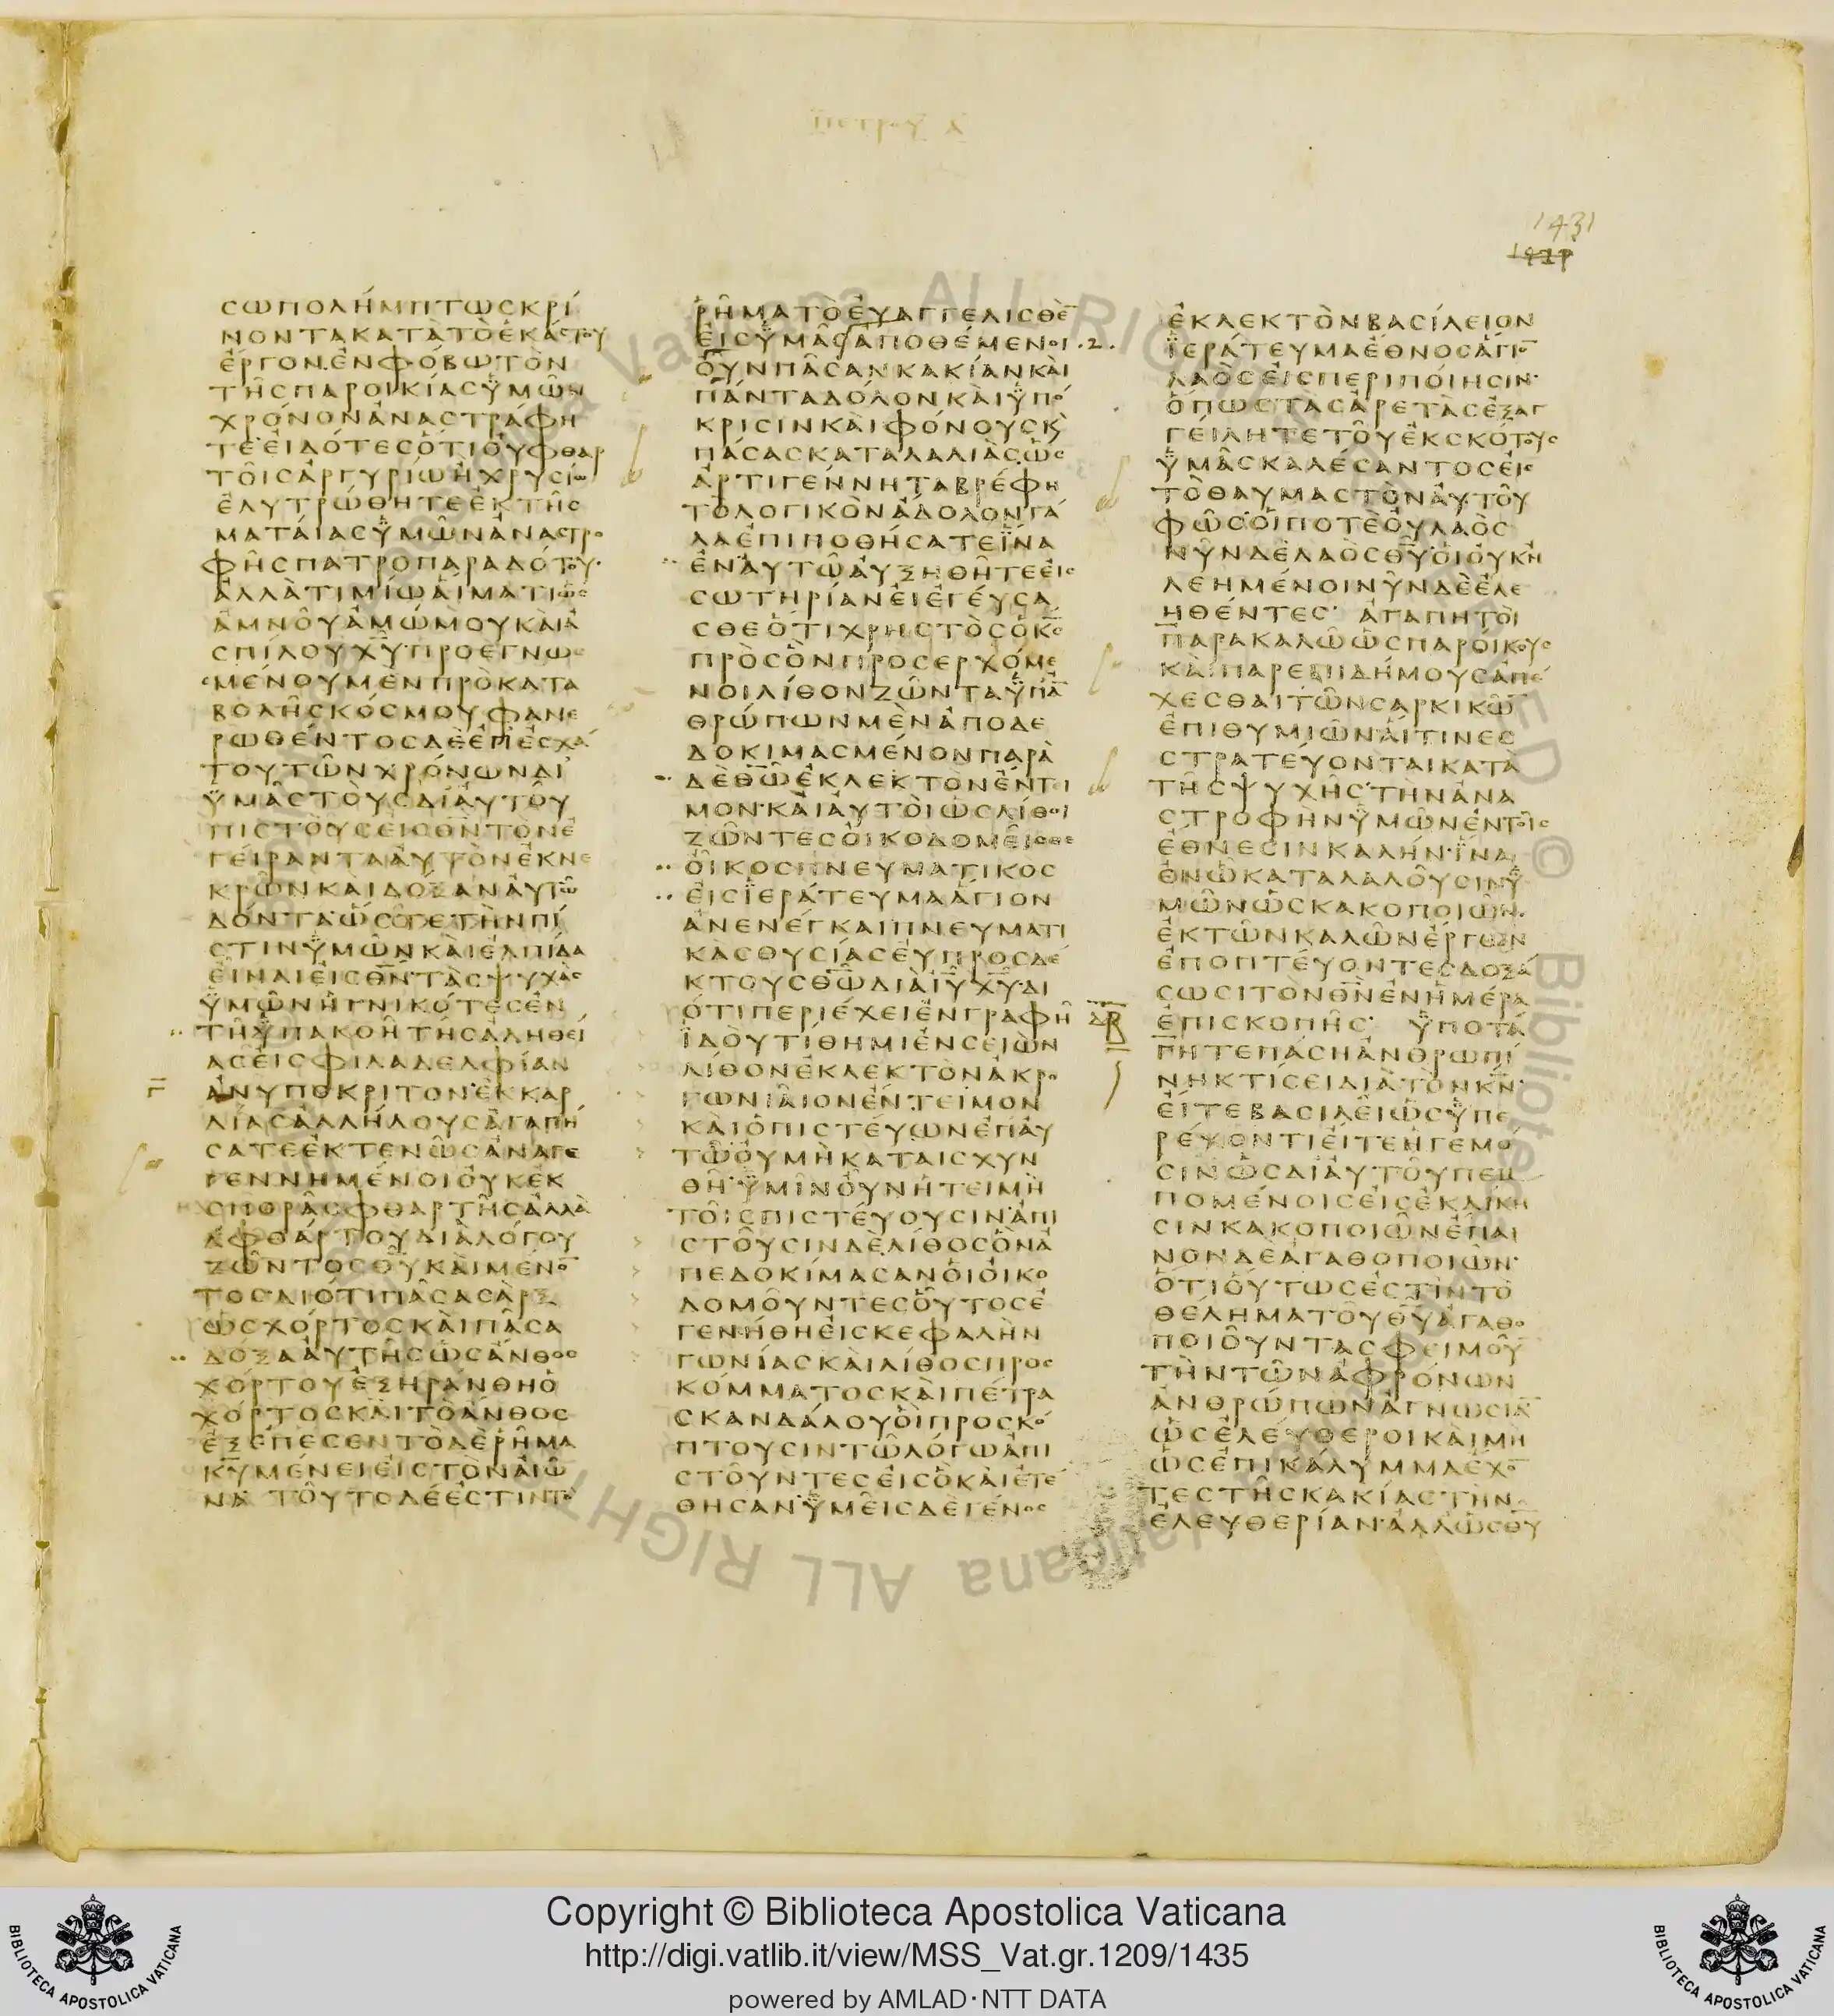 ΠΕΤΡΟΥ Α
1431
ϹΩΠΟΛΗΜΠΤΩϹΚΡΙ
ΝΟΝΤΑΚΑΤΑΤΟΕΚΑϹΤΟΥ
ΕΡΓΟΝ·ΕΝΦΟΒΩΤΟΝ
ΤΗϹΠΑΡΟΙΚΙΑϹΫΜΩΝ
ΧΡΟΝΟΝΑΝΑϹΤΡΑΦΗ
ΤΕ·ΕΙΔΟΤΕϹΟΤΙΟΥΦΘΑΡ
ΤΟΙϹΑΡΓΥΡΙΩΗΧΡΥϹΙΩ
ΕΛΥΤΡΩΘΗΤΕΕΚΤΗϹ
ΜΑΤΑΙΑϹΫΜΩΝΑΝΑϹΤΡΟ
ΦΗϹΠΑΤΡΟΠΑΡΑΔΟΤΟΥ·
ΑΛΛΑΤΙΜΙΩΑΙΜΑΤΙΩϹ
ΑΜΝΟΥΑΜΩΜΟΥΚΑΙΑ
ϹΠΙΛΟΥΧ̅Υ̅·ΠΡΟΕΓΝΩ
ϹΜΕΝΟΥΜΕΝΠΡΟΚΑΤΑ
ΒΟΛΗϹΚΟϹΜΟΥΦΑΝΕ
ΡΩΘΕΝΤΟϹΔΕΕΠΕϹΧΑ
ΤΟΥΤΩΝΧΡΟΝΩΝΔΙ
ΫΜΑϹΤΟΥϹΔΙΑΥΤΟΥ
ΠΙϹΤΟΥϹΕΙϹΘ̅Ν̅ΤΟΝΕ
ΓΕΙΡΑΝΤΑΑΥΤΟΝΕΚΝΕ
ΚΡΩΝΚΑΙΔΟΞΑΝΑΥΤΩ
ΔΟΝΤΑ·ΩϹΤΕΤΗΝΠΙ
ϹΤΙΝΫΜΩΝΚΑΙΕΛΠΙΔΑ
ΕΙΝΑΙΕΙϹΘ̅Ν̅·ΤΑϹΨΥΧΑϹ
ΫΜΩΝΗΓΝΙΚΟΤΕϹΕΝ
ΤΗΫΠΑΚΟΗΤΗϹΑΛΗΘΕΙ
ΑϹΕΙϹΦΙΛΑΔΕΛΦΙΑΝ
ΑΝΥΠΟΚΡΙΤΟΝ·ΕΚΚΑΡ
ΔΙΑϹΑΛΛΗΛΟΥϹΑΓΑΠΗ
ϹΑΤΕΕΚΤΕΝΩϹΑΝΑΓΕ
ΓΕΝΝΗΜΕΝΟΙΟΥΚΕΚ
ϹΠΟΡΑϹΦΘΑΡΤΗϹΑΛΛΑ
ΑΦΘΑΡΤΟΥΔΙΑΛΟΓΟΥ
ΖΩΝΤΟϹΘ̅Υ̅ΚΑΙΜΕΝΟ̅
ΤΟϹ·ΔΙΟΤΙΠΑϹΑϹΑΡΞ
ΩϹΧΟΡΤΟϹΚΑΙΠΑϹΑ
ΔΟΞΑΑΥΤΗϹΩϹΑΝΘΟϹ
ΧΟΡΤΟΥΕΞΗΡΑΝΘΗΟ
ΧΟΡΤΟϹΚΑΙΤΟΑΝΘΟϹ
ΕΞΕΠΕϹΕΝΤΟΔΕΡΗΜΑ
Κ̅Υ̅ΜΕΝΕΙΕΙϹΤΟΝΑΙΩ
ΝΑ ΤΟΥΤΟΔΕΕϹΤΙΝΤΟ
ΡΗΜΑΤΟΕΥΑΓΓΕΛΙϹΘΕ̅
ΕΙϹΫΜΑϹΑΠΟΘΕΜΕΝΟΙ ·2·
ΟΥΝΠΑϹΑΝΚΑΚΙΑΝΚΑΙ
ΠΑΝΤΑΔΟΛΟΝΚΑΙΫΠΟ
ΚΡΙϹΙΝΚΑΙΦΟΝΟΥϹΚ
ΠΑϹΑϹΚΑΤΑΛΑΛΙΑϹΩϹ
ΑΡΤΙΓΕΝΝΗΤΑΒΡΕΦΗ
ΤΟΛΟΓΙΚΟΝΑΔΟΛΟΝΓΑ
ΛΑΕΠΙΠΟΘΗϹΑΤΕΪΝΑ
ΕΝΑΥΤΩΑΥΞΗΘΗΤΕΕΙϹ
ϹΩΤΗΡΙΑΝΕΙΕΓΕΥϹΑ
ϹΘΕΟΤΙΧΡΗϹΤΟϹΟΚ̅Ϲ̅
ΠΡΟϹΟΝΠΡΟϹΕΡΧΟΜΕ
ΝΟΙΛΙΘΟΝΖΩΝΤΑΫΠΑ̅
ΘΡΩΠΩΝΜΕΝΑΠΟΔΕ
ΔΟΚΙΜΑϹΜΕΝΟΝΠΑΡΑ
ΔΕΘ̅Ω̅ΕΚΛΕΚΤΟΝΕΝΤΙ
ΜΟΝ·ΚΑΙΑΥΤΟΙΩϹΛΙΘΟΙ
ΖΩΝΤΕϹΟΙΚΟΔΟΜΕΙϹΘΕ
ΟΙΚΟϹΠΝΕΥΜΑΤΙΚΟϹ
ΕΙϹΪΕΡΑΤΕΥΜΑΑΓΙΟΝ
ΑΝΕΝΕΓΚΑΙΠΝΕΥΜΑΤΙ
ΚΑϹΘΥϹΙΑϹΕΥΠΡΟϹΔΕ
ΚΤΟΥϹΘ̅Ω̅ΔΙΑΙ̅Υ̅Χ̅Υ̅·ΔΙ
ΟΤΙΠΕΡΙΕΧΕΙΕΝΓΡΑΦΗ
ΪΔΟΥΤΙΘΗΜΙΕΝϹΕΙΩΝ
ΛΙΘΟΝΕΚΛΕΚΤΟΝΑΚΡΟ
ΓΩΝΙΑΙΟΝΕΝΤΕΙΜΟΝ
ΚΑΙΟΠΙϹΤΕΥΩΝΕΠΑΥ
ΤΩΟΥΜΗΚΑΤΑΙϹΧΥΝ
ΘΗ·ΫΜΙΝΟΥΝΗΤΕΙΜΗ
ΤΟΙϹΠΙϹΤΕΥΟΥϹΙΝ·ΑΠΙ
ϹΤΟΥϹΙΝΔΕΛΙΘΟϹΟΝΑ
ΠΕΔΟΚΙΜΑϹΑΝΟΙΟΙΚΟ
ΔΟΜΟΥΝΤΕϹΟΥΤΟϹΕ
ΓΕΝΗΘΗΕΙϹΚΕΦΑΛΗΝ
ΓΩΝΙΑϹΚΑΙΛΙΘΟϹΠΡΟϹ
ΚΟΜΜΑΤΟϹΚΑΙΠΕΤΡΑ
ϹΚΑΝΔΑΛΟΥΟΙΠΡΟϹΚΟ
ΠΤΟΥϹΙΝΤΩΛΟΓΩΑΠΙ
ϹΤΟΥΝΤΕϹΕΙϹΟΚΑΙΕΤΕ
ΘΗϹΑΝ·ΫΜΕΙϹΔΕΓΕΝΟϹ
ΕΚΛΕΚΤΟΝΒΑϹΙΛΕΙΟΝ
ΪΕΡΑΤΕΥΜΑΕΘΝΟϹΑΓΙΟ̅
ΛΑΟϹΕΙϹΠΕΡΙΠΟΙΗϹΙΝ·
ΟΠΩϹΤΑϹΑΡΕΤΑϹΕΞΑΓ
ΓΕΙΛΗΤΕΤΟΥΕΚϹΚΟΤΟΥϹ
ΫΜΑϹΚΑΛΕϹΑΝΤΟϹΕΙϹ
ΤΟΘΑΥΜΑϹΤΟΝΑΥΤΟΥ
ΦΩϹ·ΟΙΠΟΤΕΟΥΛΑΟϹ
ΝΥΝΔΕΛΑΟϹΘ̅Υ̅·ΟΙΟΥΚΗ
ΛΕΗΜΕΝΟΙΝΥΝΔΕΕΛΕ
ΗΘΕΝΤΕϹ· ΑΓΑΠΗΤΟΙ
ΠΑΡΑΚΑΛΩΩϹΠΑΡΟΙΚΟΥϹ
ΚΑΙΠΑΡΕΠΙΔΗΜΟΥϹΑΠΕ
ΧΕϹΘΑΙΤΩΝϹΑΡΚΙΚΩ̅
ΕΠΙΘΥΜΙΩΝΑΙΤΙΝΕϹ
ϹΤΡΑΤΕΥΟΝΤΑΙΚΑΤΑ
ΤΗϹΨΥΧΗϹ·ΤΗΝΑΝΑ
ϹΤΡΟΦΗΝΫΜΩΝΕΝΤΟΙϹ
ΕΘΝΕϹΙΝΚΑΛΗΝ·ΪΝΑ
ΕΝΩΚΑΤΑΛΑΛΟΥϹΙΝΫ
ΜΩΝΩϹΚΑΚΟΠΟΙΩΝ·
ΕΚΤΩΝΚΑΛΩΝΕΡΓΩΝ
ΕΠΟΠΤΕΥΟΝΤΕϹΔΟΞΑ
ϹΩϹΙΤΟΝΘ̅Ν̅ΕΝΗΜΕΡΑ
ΕΠΙϹΚΟΠΗϹ· ΫΠΟΤΑ
ΓΗΤΕΠΑϹΗΑΝΘΡΩΠΙ
ΝΗΚΤΙϹΕΙΔΙΑΤΟΝΚ̅Ν̅·
ΕΙΤΕΒΑϹΙΛΕΙΩϹΫΠΕ
ΡΕΧΟΝΤΙΕΙΤΕΗΓΕΜΟ
ϹΙΝΩϹΔΙΑΥΤΟΥΠΕΜ
ΠΟΜΕΝΟΙϹΕΙϹΕΚΔΙΚΗ
ϹΙΝΚΑΚΟΠΟΙΩΝΕΠΑΙ
ΝΟΝΔΕΑΓΑΘΟΠΟΙΩΝ·
ΟΤΙΟΥΤΩϹΕϹΤΙΝΤΟ
ΘΕΛΗΜΑΤΟΥΘ̅Υ̅ΑΓΑΘΟ
ΠΟΙΟΥΝΤΑϹΦΕΙΜΟΥ̅
ΤΗΝΤΩΝΑΦΡΟΝΩΝ
ΑΝΘΡΩΠΩΝΑΓΝΩϹΙΑ̅
ΩϹΕΛΕΥΘΕΡΟΙΚΑΙΜΗ
ΩϹΕΠΙΚΑΛΥΜΜΑΕΧΟ̅
ΤΕϹΤΗϹΚΑΚΙΑϹΤΗΝ
ΕΛΕΥΘΕΡΙΑΝ·ΑΛΛΩϹΘ̅Υ̅
Copyright © Biblioteca Apostolica Vaticana
http://digi.vatlib.it/view/MSS_Vat.gr.1209/1435
powered by AMLAD·NTT DATA
BIBLIOTECA APOSTOLICA VATICANA
BIBLIOTECA APOSTOLICA VATICANA